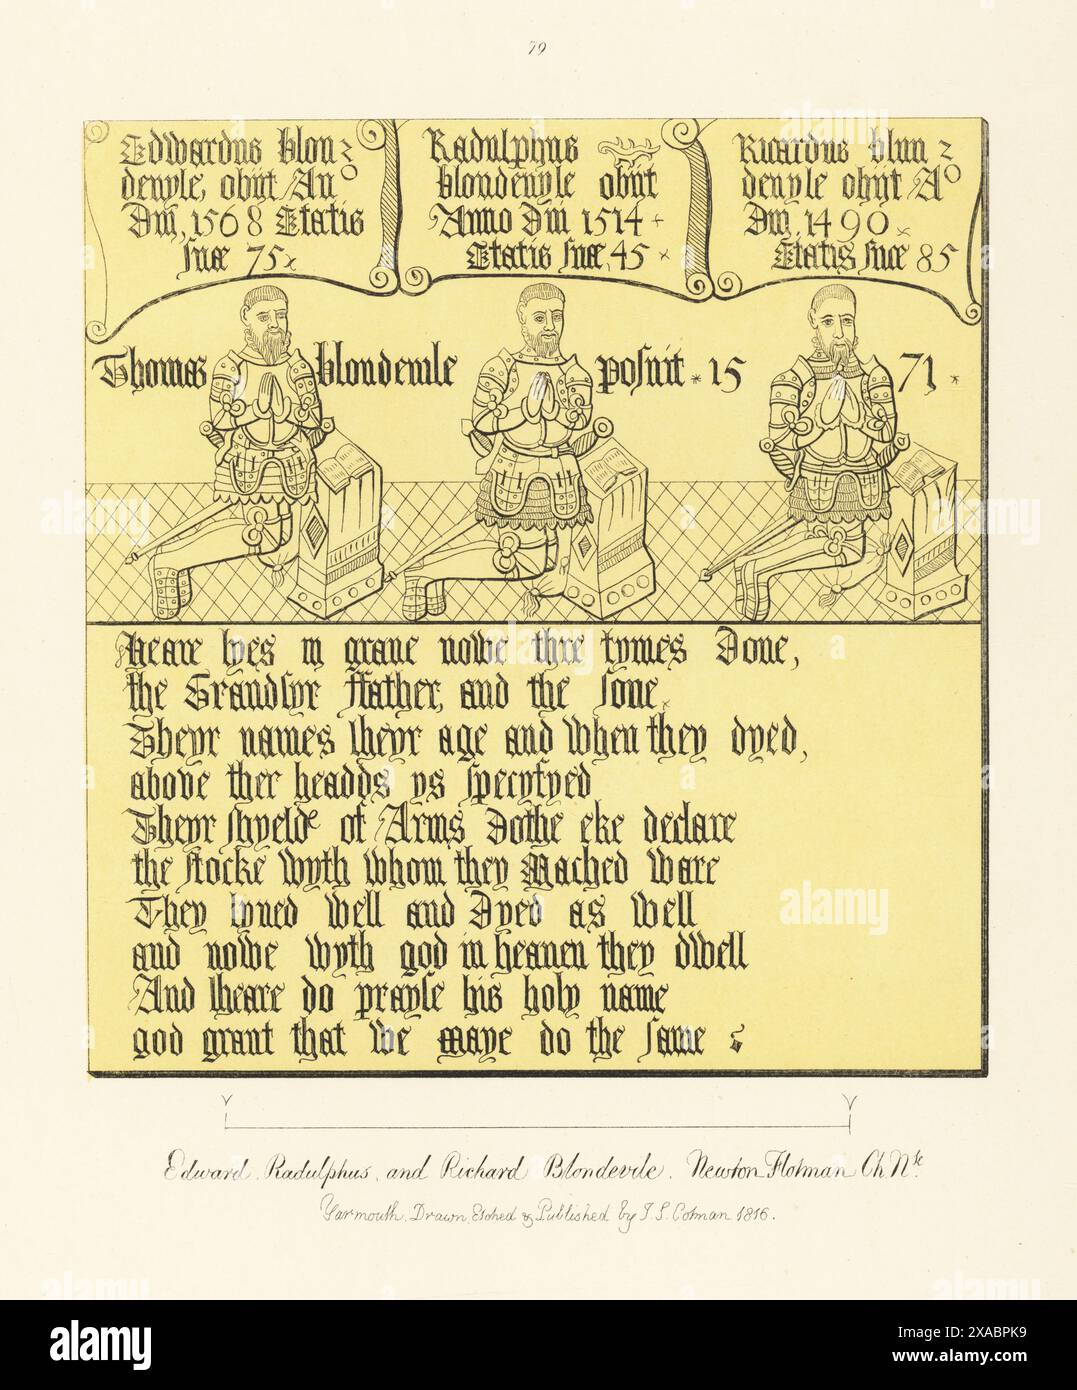 79
Edwardus blon
devyle, obijt An°
Dni, 1568 Etatis
suæ 75
Radulphus
blondevyle obijt
Anno Dni 1514
Etatis suæ, 45
Ricardus blun
devyle obijt A°
Dni, 1490
Etatis suæ 85
Thomas blondevile posuit 15 71
Heare lyes in grave nowe thre tymes Done,
the Grandsyr ffather, and the sone
Theyr names theyr age and when they dyed,
above ther headds ys specyfyed
Theyr shyelde of Arms Dothe eke declare
the stocke wyth whom they Mached ware
They lyved well and Dyed as well
and nowe wyth god in heaven they dwell
And theare do prayse his holy name
god grant that we maye do the same
Edward, Radulphus, and Richard Blondevile. Newton Flotman Ch. Nk.
Yarmouth, Drawn Etched & Published by J. S. Cotman 1816.
alamy
Image ID: 2XABPK9
www.alamy.com